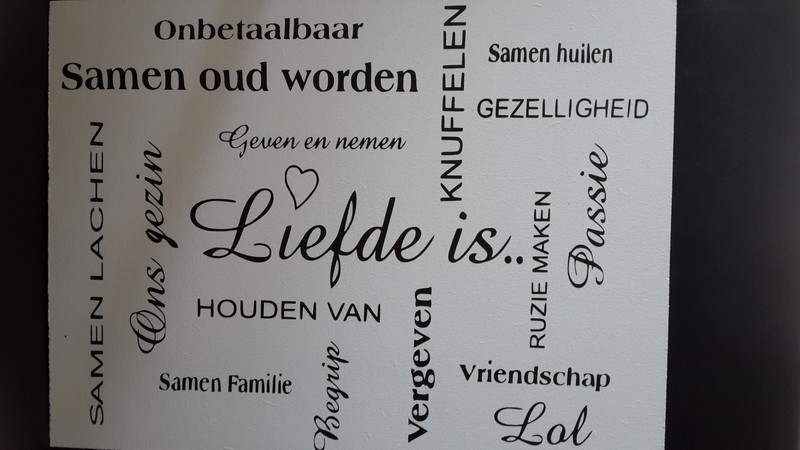 Onbetaalbaar
Samen oud worden
KNUFFELEN
Samen huilen
GEZELLIGHEID
Geven en nemen
SAMEN LACHEN
Ons gezin
Liefde is..
RUZIE MAKEN
Passie
HOUDEN VAN
Samen Familie
Begrip
vergeven
Vriendschap
Lol